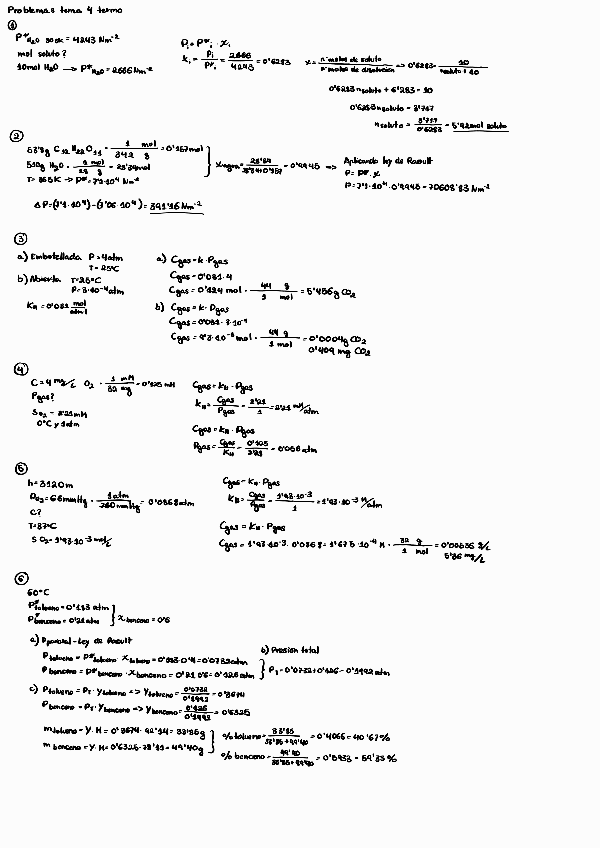 Problemas tema 4 termo
①
P*H2O 303K = 4243 Nm⁻²
mol soluto?
10 mol H2O → P*H2O = 2666 Nm⁻²
Pi = P*i · Xi
Xi = Pi / P*i = 2666 / 4243 = 0'6283
X = nº moles de soluto / nº moles de disolución => 0'6283 = 10 / nsoluto + 10
0'6283 nsoluto + 6'283 = 10
0'6283 nsoluto = 3'717
nsoluto = 3'717 / 0'6283 = 5'92 mol soluto
②
53'8g C12 H22 O11 · 1 mol / 342 g = 0'157 mol
510g H2O · 1 mol / 18 g = 28'34 mol
P* = 7'1·10⁴ Nm⁻²
Aplicando ley de Raoult
P = P* · X
P = 7'1·10⁴ · 0'9945 = 70608'83 Nm⁻²
ΔP = (7'1·10⁴) - (7'06·10⁴) = 391'16 Nm⁻²
③
a) Embotellada. P = 4 atm
T = 25°C
b) Abierta. T = 25°C
P = 3·10⁻⁴ atm
KH = 0'031 mol / atm·l
a) Cgas = k · Pgas
Cgas = 0'031 · 4
Cgas = 0'124 mol · 44 g / 1 mol = 5'456 g CO2
b) Cgas = k · Pgas
Cgas = 0'031 · 3·10⁻⁴
Cgas = 9'3·10⁻⁶ mol · 44 g / 1 mol = 0'0004 g CO2
0'409 mg CO2
④
C = 4 mg/L O2 · 1 mM / 32 mg = 0'125 mM
Pgas?
SO2 = 2'21 mM
0°C y 1 atm
Cgas = KH · Pgas
KH = Cgas / Pgas = 2'21 / 1 = 2'21 mM/atm
Cgas = KH · Pgas
Pgas = Cgas / KH = 0'125 / 2'21 = 0'056 atm
⑤
h = 3120 m
PO2 = 66 mmHg · 1 atm / 760 mmHg = 0'0868 atm
C?
T = 37°C
S O2 = 1'93·10⁻³ mol/L
Cgas = KH · Pgas
KH = Cgas / Pgas = 1'93·10⁻³ / 1 = 1'93·10⁻³ M/atm
Cgas = KH · Pgas
Cgas = 1'93·10⁻³ · 0'0868 = 1'675·10⁻⁴ M · 32 g / 1 mol = 0'00536 g/L
5'36 mg/L
⑥
60°C
P*tolueno = 0'183 atm
P*benceno = 0'21 atm } Xbenceno = 0'6
a) Pparcial - Ley de Raoult
Ptolueno = P*tolueno · Xtolueno = 0'183·0'4 = 0'0732 atm
Pbenceno = P*benceno · Xbenceno = 0'21·0'6 = 0'126 atm
b) Presión total
PT = 0'0732 + 0'126 = 0'1992 atm
c) Ptolueno = PT · Ytolueno => Ytolueno = 0'0732 / 0'1992 = 0'3674
Pbenceno = PT · Ybenceno => Ybenceno = 0'126 / 0'1992 = 0'6325
mtolueno = Y · M = 0'3674 · 92'14 = 33'85g
mbenceno = Y · M = 0'6325 · 78'11 = 49'40g
% tolueno = 33'85 / 33'85 + 49'40 = 0'4066 = 40'67%
% benceno = 49'40 / 33'85 + 49'40 = 0'5933 = 59'33%